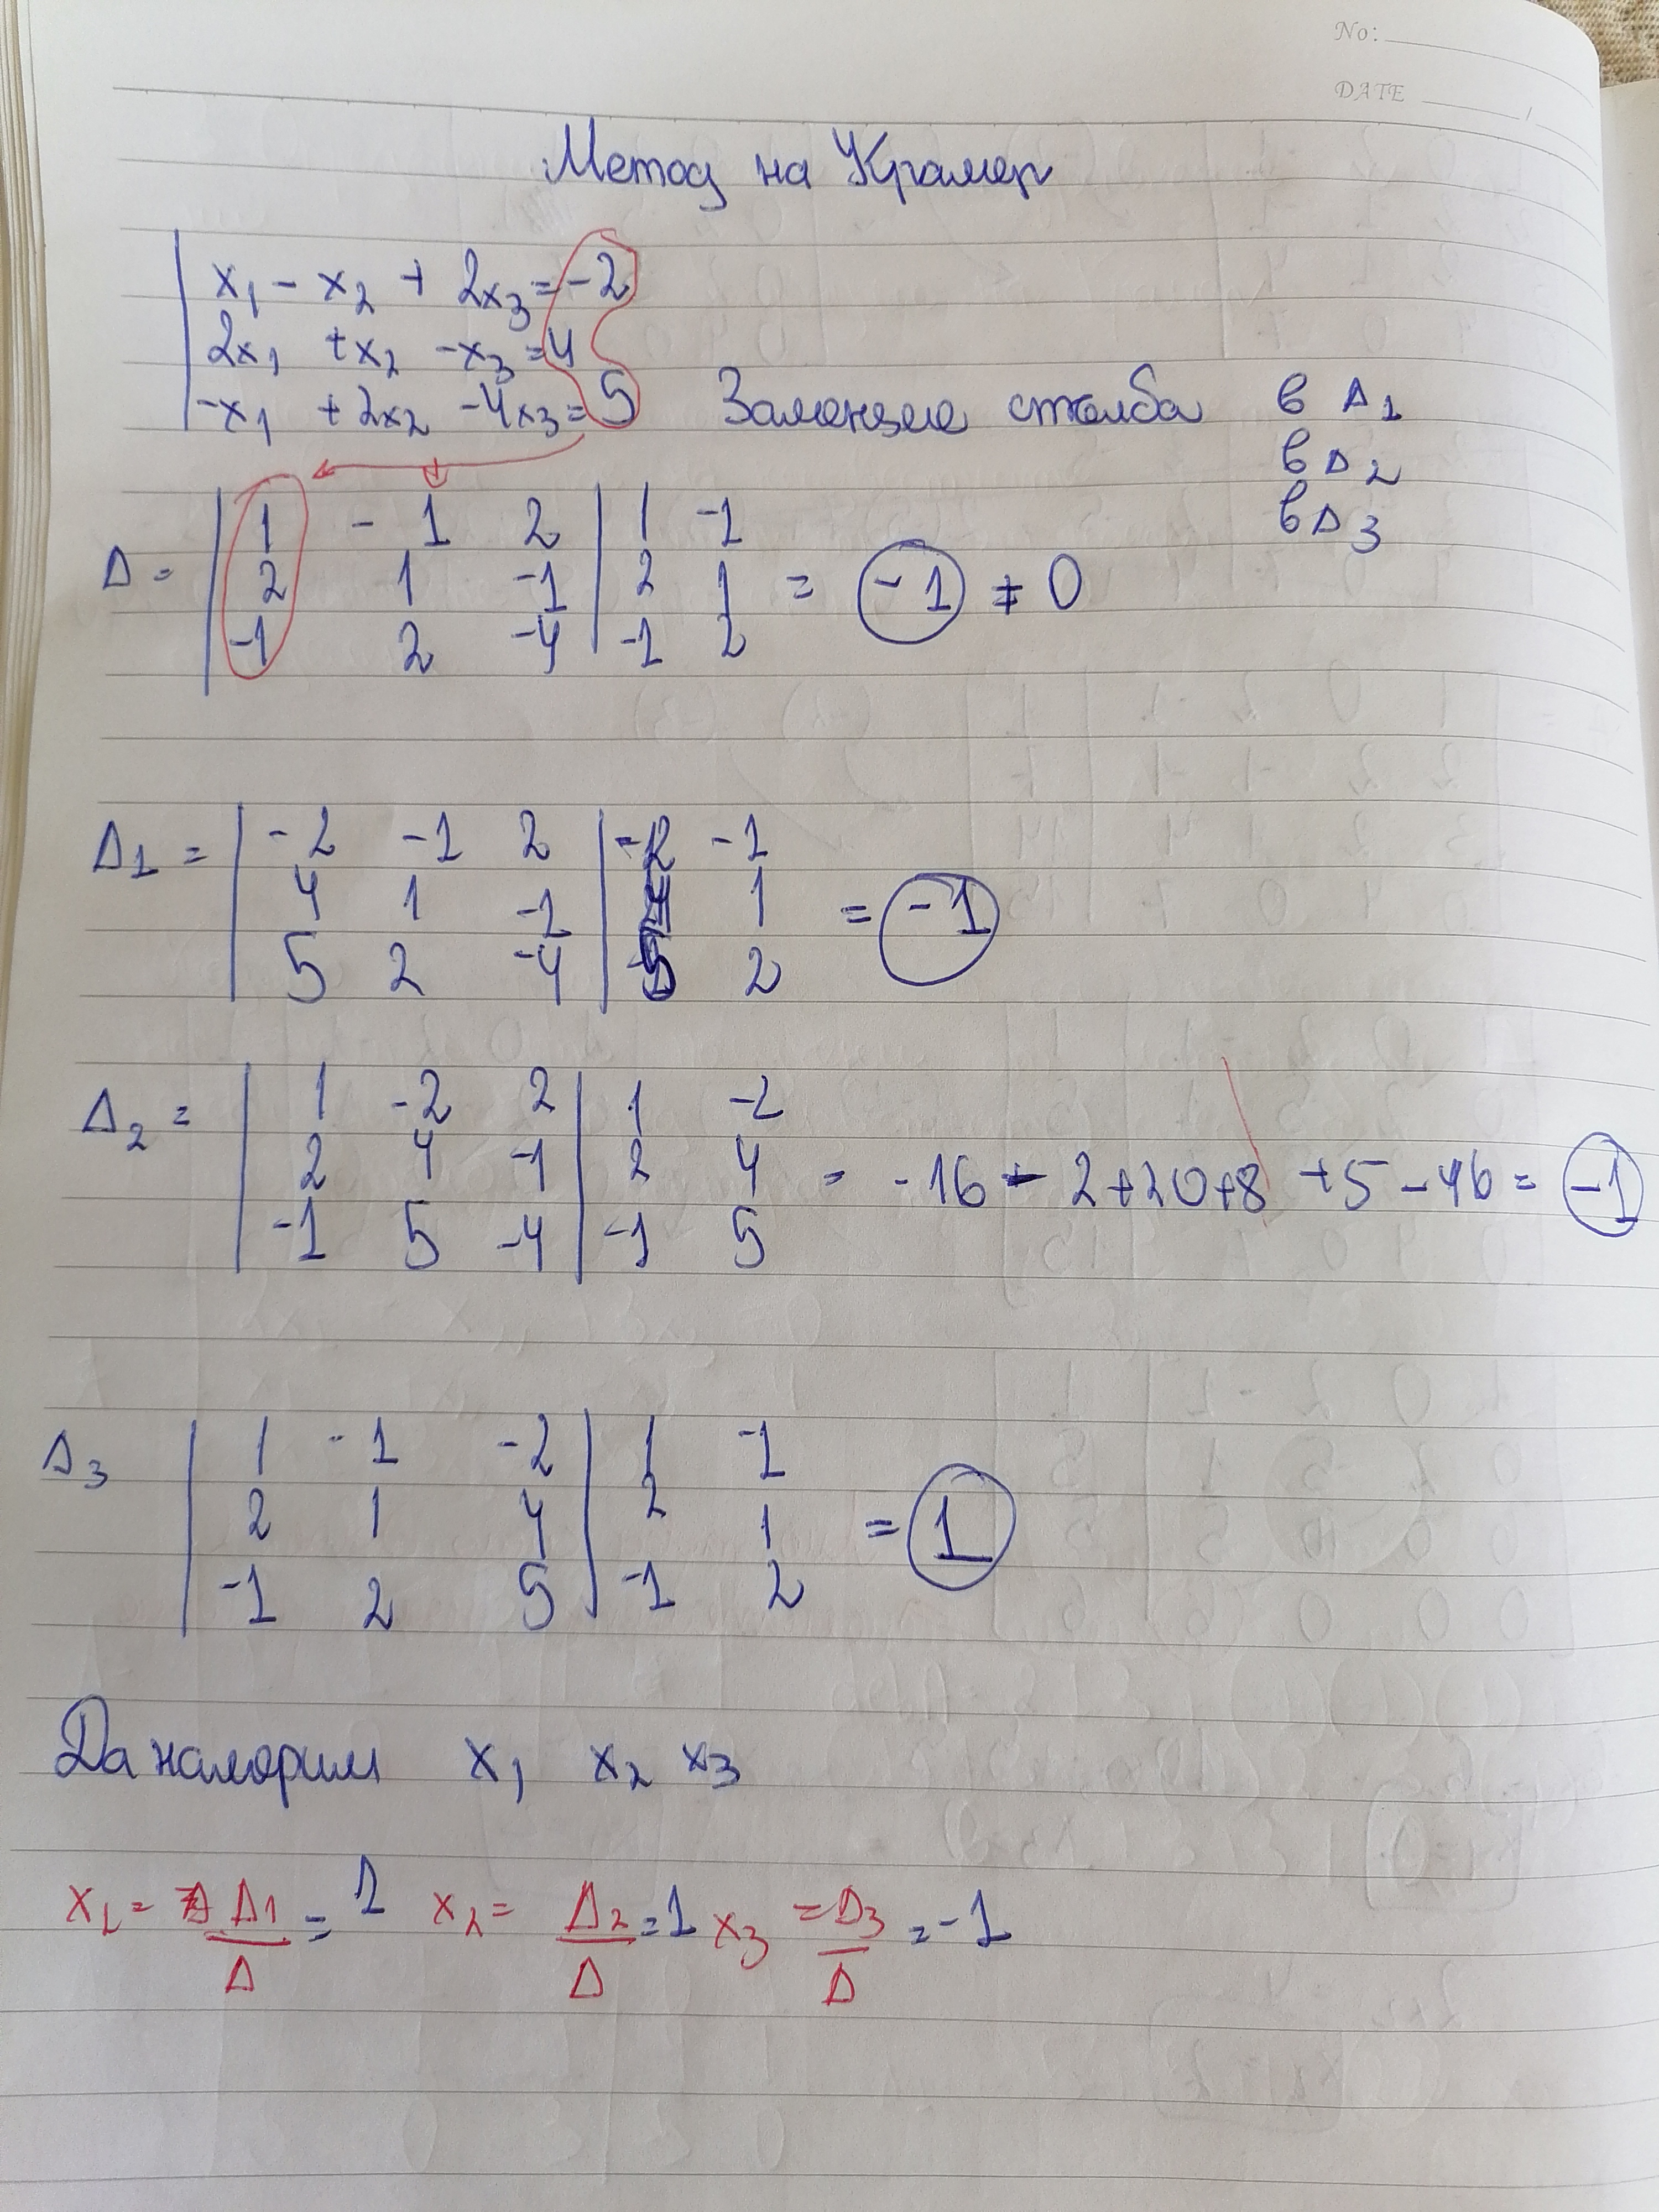 No:
DATE
Метод на Крамер
x₁ - x₂ + 2x₃ = -2
2x₁ + x₂ - x₃ = 4
-x₁ + 2x₂ - 4x₃ = 5 Заменяме стълба в Δ1
в Δ2
в Δ3
1 -1 2 | 1 -1
Δ = 2 1 -1 | 2 1 = -1 ≠ 0
-1 2 -4 | -1 2
Δ1 = | -2 -1 2 | -2 -1
4 1 -1 | 4 1 = -1
5 2 -4 | 5 2
Δ2 = | 1 -2 2 | 1 -2
2 4 -1 | 2 4 = -16 - 2 + 20 + 8 + 5 - 16 = -1
-1 5 -4 | -1 5
Δ3 | 1 -1 -2 | 1 -1
2 1 4 | 2 1 = 1
-1 2 5 | -1 2
Да намерим x₁ x₂ x₃
x₁ = Δ1/Δ = 1 x₂ = Δ2/Δ = 1 x₃ = Δ3/Δ = -1